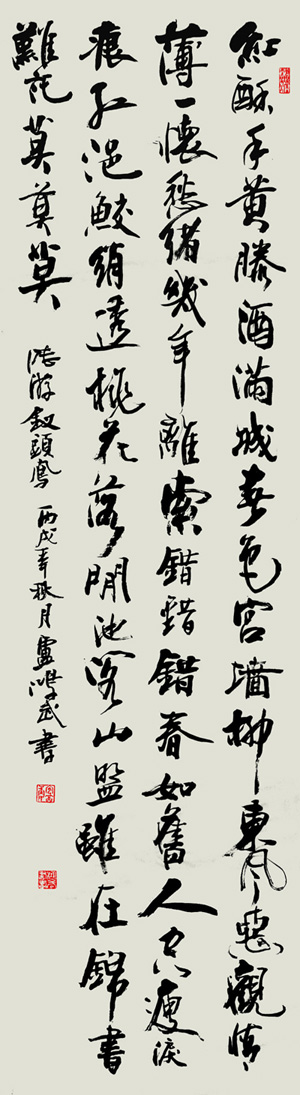 紅酥手黃滕酒滿城春色宮墻柳東風惡觀情
薄一懷愁緒幾年離索錯錯錯春如舊人空瘦淚
痕紅浥鮫綃透桃花落閑池閣山盟雖在錦書
難託莫莫莫
陸游釵頭鳳 丙戌年秋月盧鴻武書